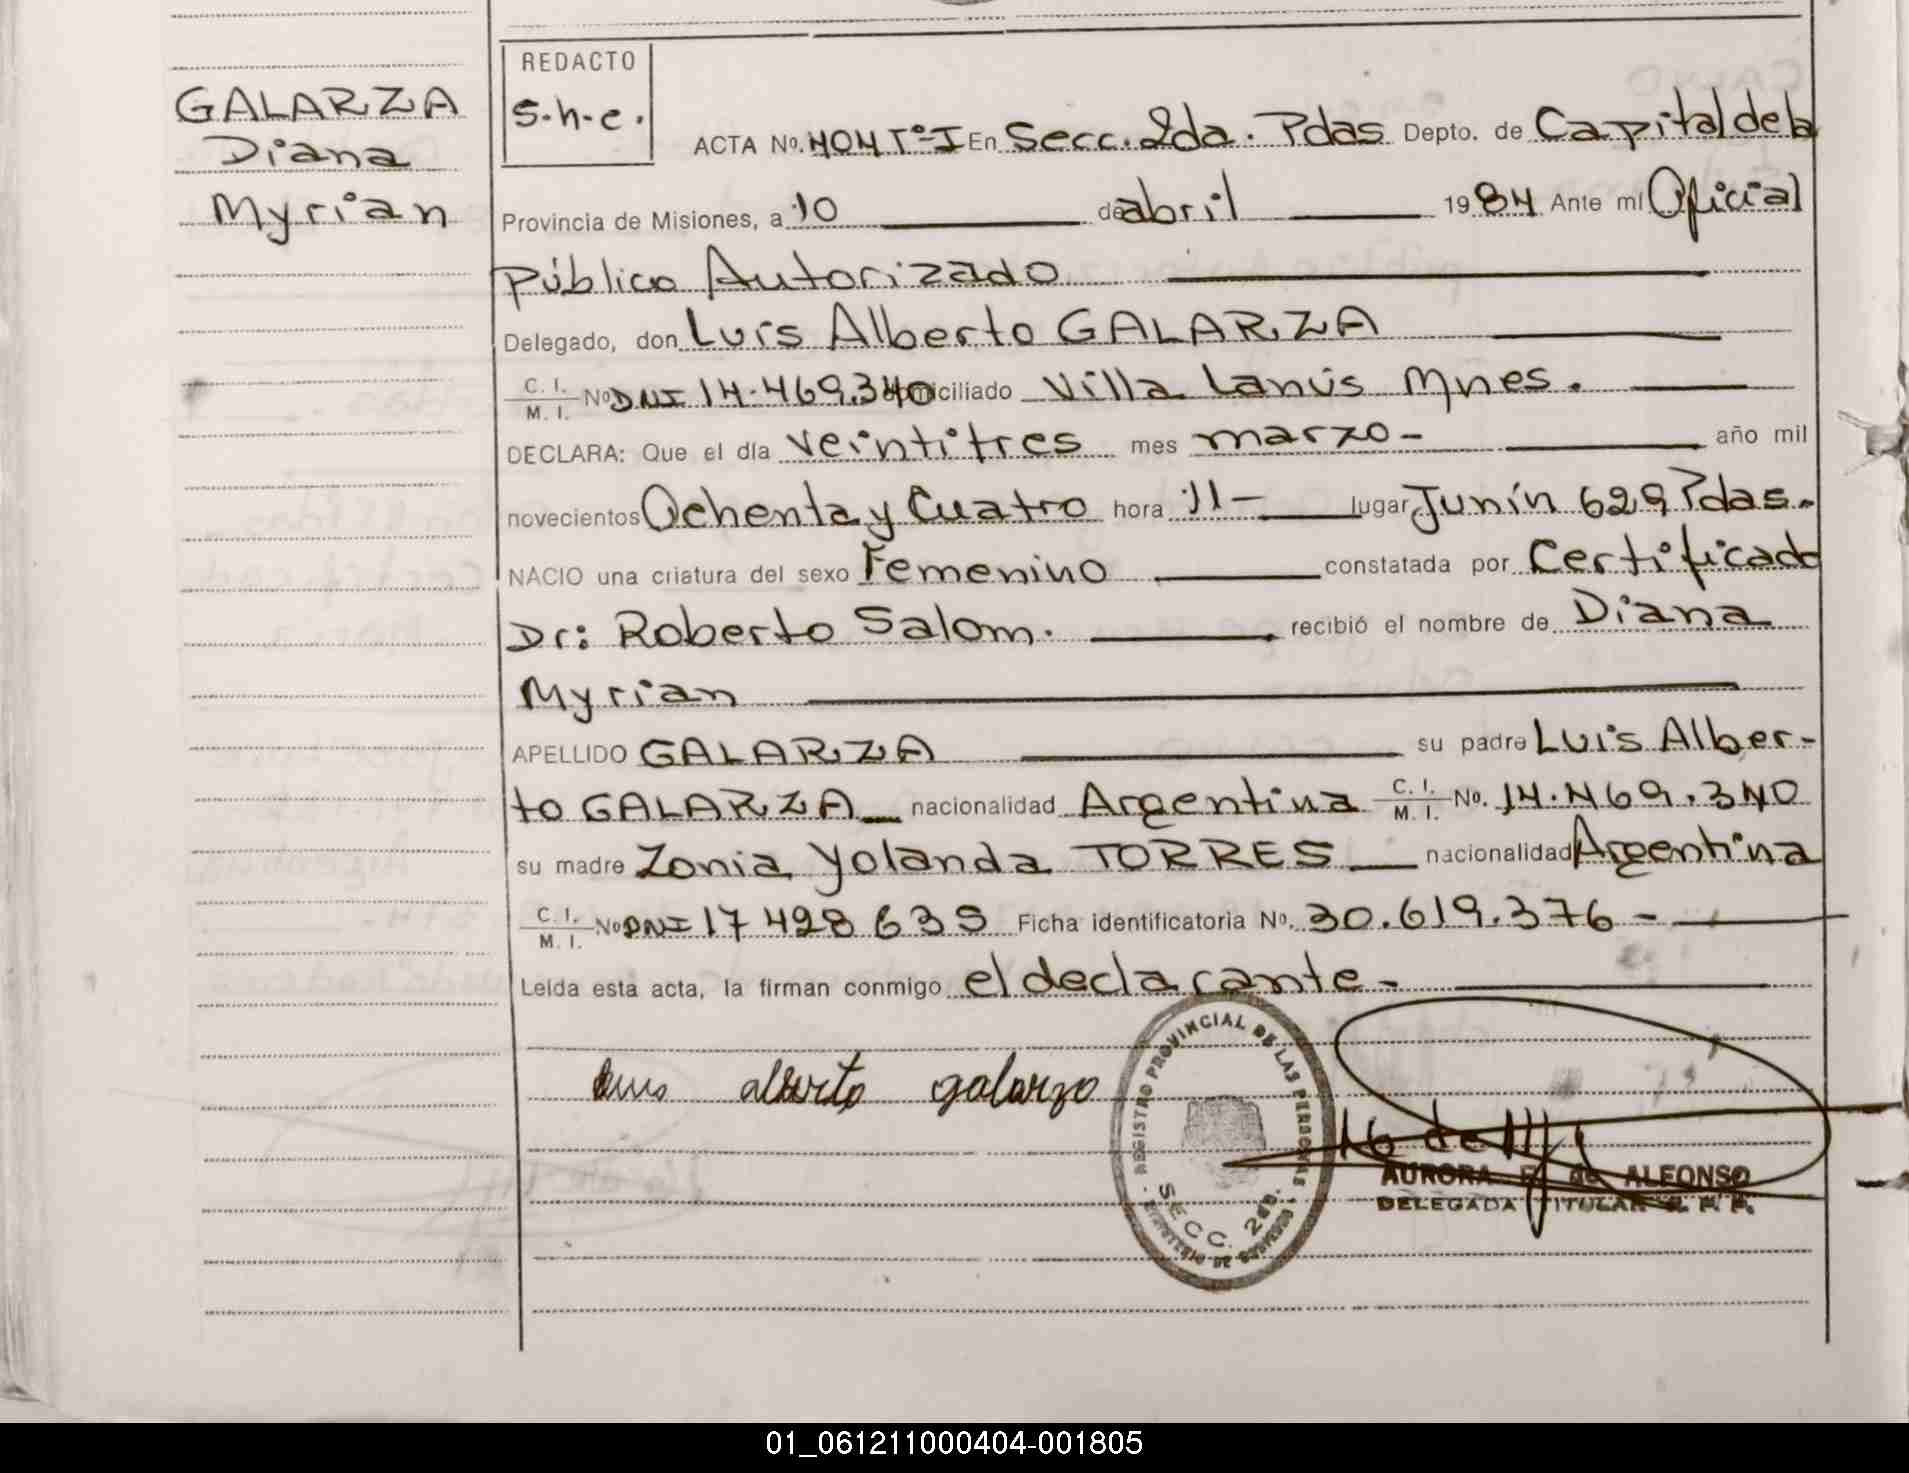 GALARZA
Diana
Myrian
REDACTO
S.h.e.
ACTA No. 404 Tº-I En Secc. 2da. Pdas Depto. de Capital de la
Provincia de Misiones, a 10 de abril 1984 Ante mí Oficial
Público Autorizado
Delegado, don Luis Alberto GALARZA
C. I. M. I. Nº DNI 14.469.340 domiciliado Villa Lanús Mnes.
DECLARA: Que el día veintitres mes marzo- año mil
novecientos Ochenta y Cuatro hora 11- lugar Junín 629 Pdas.
NACIO una criatura del sexo Femenino constatada por Certificado
Dr: Roberto Salom. recibió el nombre de Diana
Myrian
APELLIDO GALARZA su padre Luis Alber-
to GALARZA nacionalidad Argentina C. I. M. I. No. 14.469.340
su madre Zonia Yolanda TORRES nacionalidad Argentina
C. I. M. I. Nº DNI 17 428 635 Ficha identificatoria No. 30.619.376 -
Leída esta acta, la firman conmigo el declarante-
Luis alberto galarzo
REGISTRO PROVINCIAL DE LAS PERSONAS
SECC. 2da.
MINISTERIO DE GOBIERNO
AURORA E. de ALFONSO
DELEGADA TITULAR R. P. P.
01_061211000404-001805